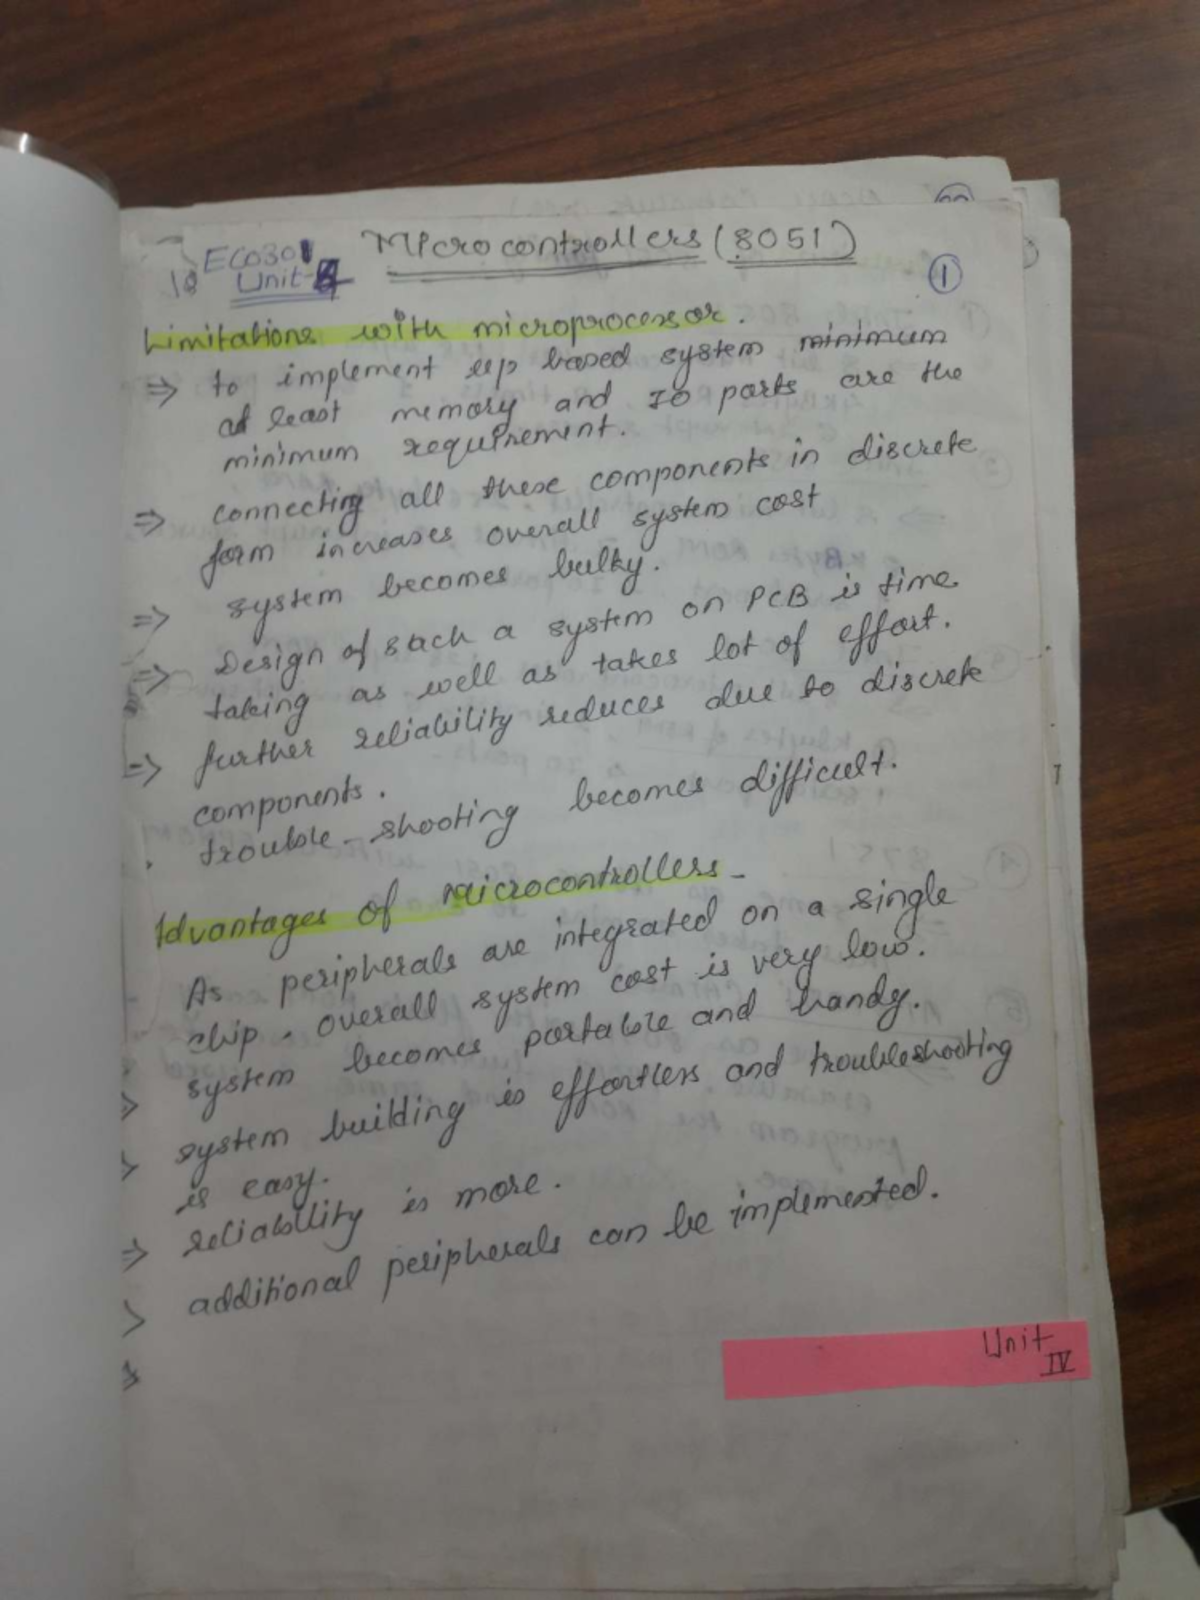 Microcontrollers (8051)
18 ECO301
Unit-4
1
Limitations with microprocessor.
⇒ to implement up based system minimum
at least memory and IO ports are the
minimum requirement.
⇒ connecting all these components in discrete
form increases overall system cost
⇒ system becomes bulky.
⇒ Design of such a system on PCB is time
taking as well as takes lot of effort.
⇒ further reliability reduces due to discrete
components.
trouble-shooting becomes difficult.
Advantages of Microcontrollers-
As peripherals are integrated on a single
chip. overall system cost is very low.
system becomes portable and handy.
system building is effortless and troubleshooting
is easy.
reliability is more.
additional peripherals can be implemented.
Unit
IV